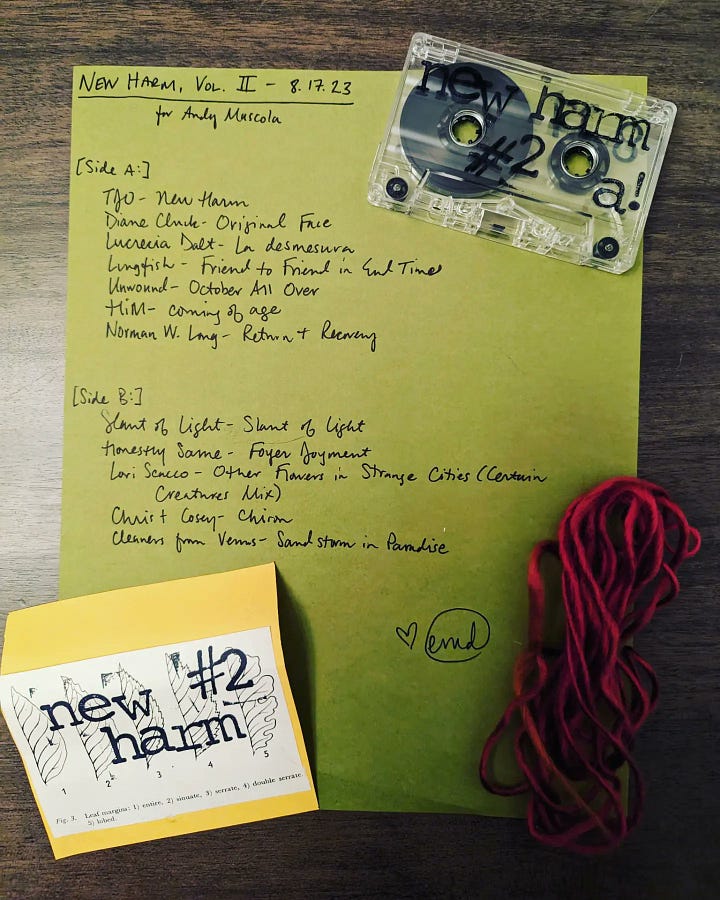 NEW HARM, VOL. II - 8.17.23
for Andy Mascola
[Side A:]
TJO - New Harm
Diane Cluck - Original Face
Lucrecia Dalt - La desmesura
Lungfish - Friend to Friend in End Times
Unwound - October All Over
HiM - coming of age
Norman W. Long - Return + Recovery
[Side B:]
Slant of Light - Slant of Light
Honestly Same - Foyer Joyment
Lori Scacco - Other Flowers in Strange Cities (Certain
Creatures Mix)
Chris + Cosey - Chiron
Cleaners from Venus - Sandstorm in Paradise
♡ emd
new harm
#2
a!
new #2
harm
1 2 3 4 5
Fig. 3. Leaf margins: 1) entire, 2) sinuate, 3) serrate, 4) double serrate
5) lobed.